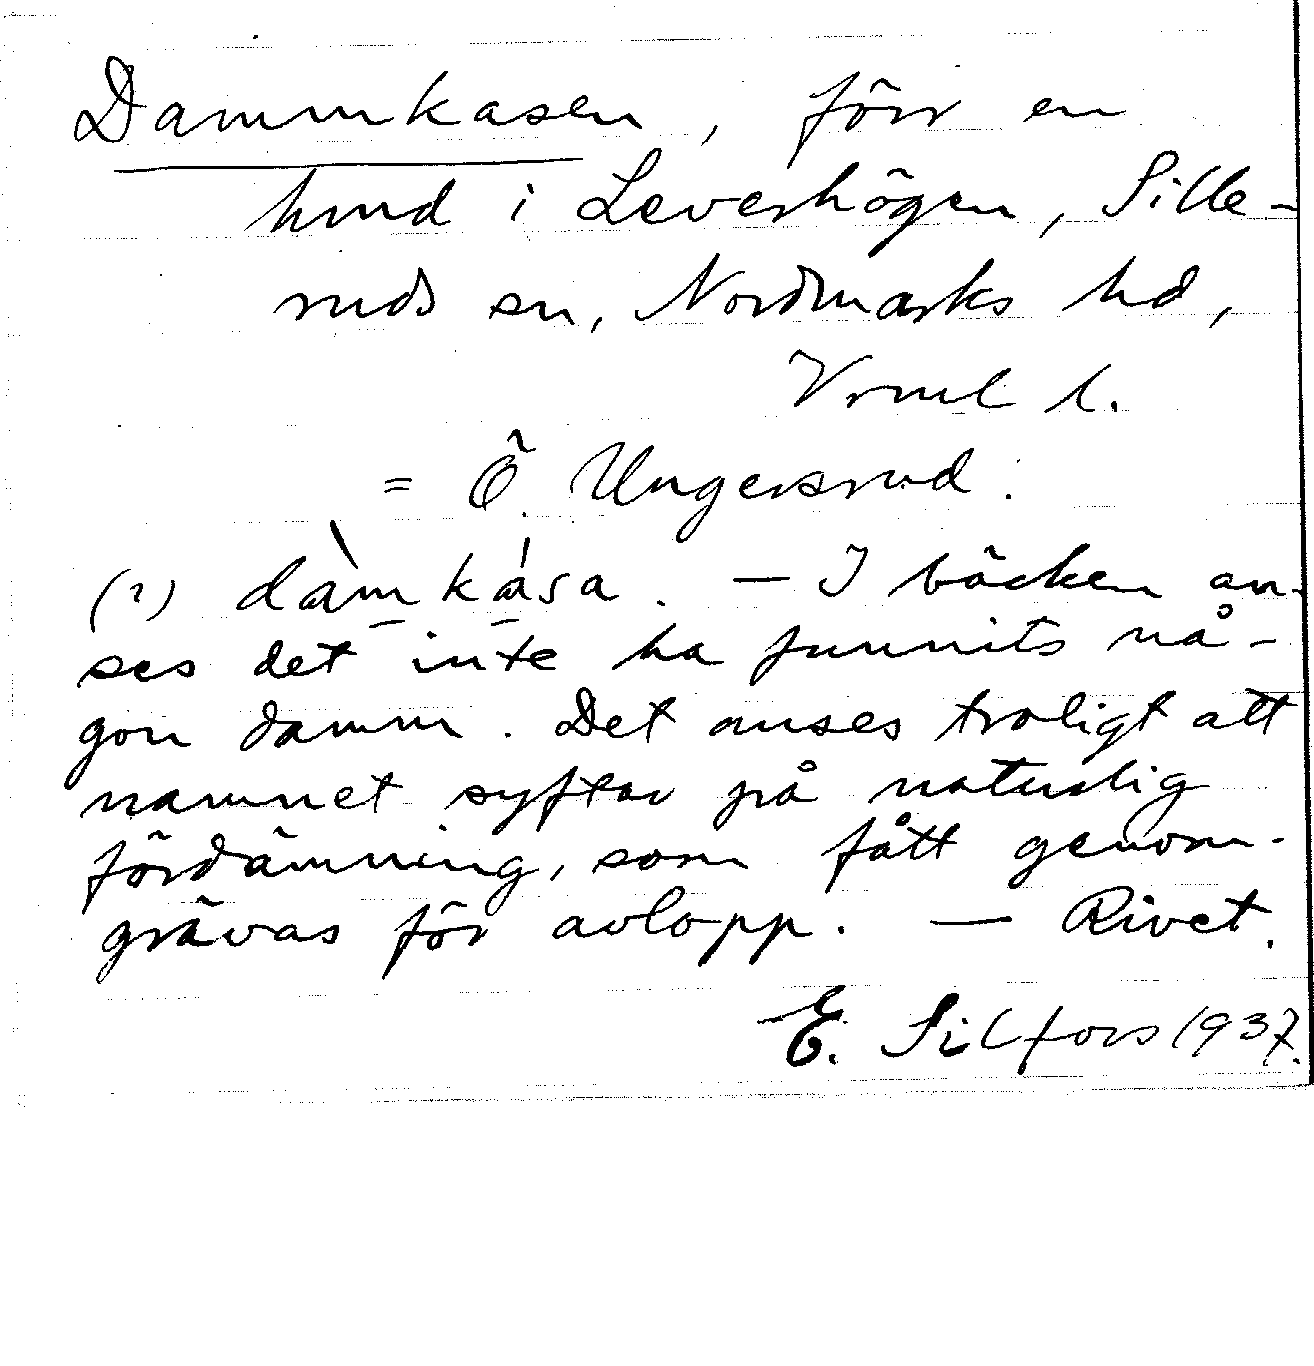 Dammkasen, förr en
hmd i Leverhögen, Sille-
ruds sn, Nordmarks hd,
Vrml l.
= Ö. Ungersrud.
(?) dàmkása. — I bäcken an-
ses det inte ha funnits nå-
gon damm. Det anses troligt att
namnet syftar på naturlig
fördämning, som fått genom-
grävas för avlopp. — Rivet.
E. Silfors 1937.